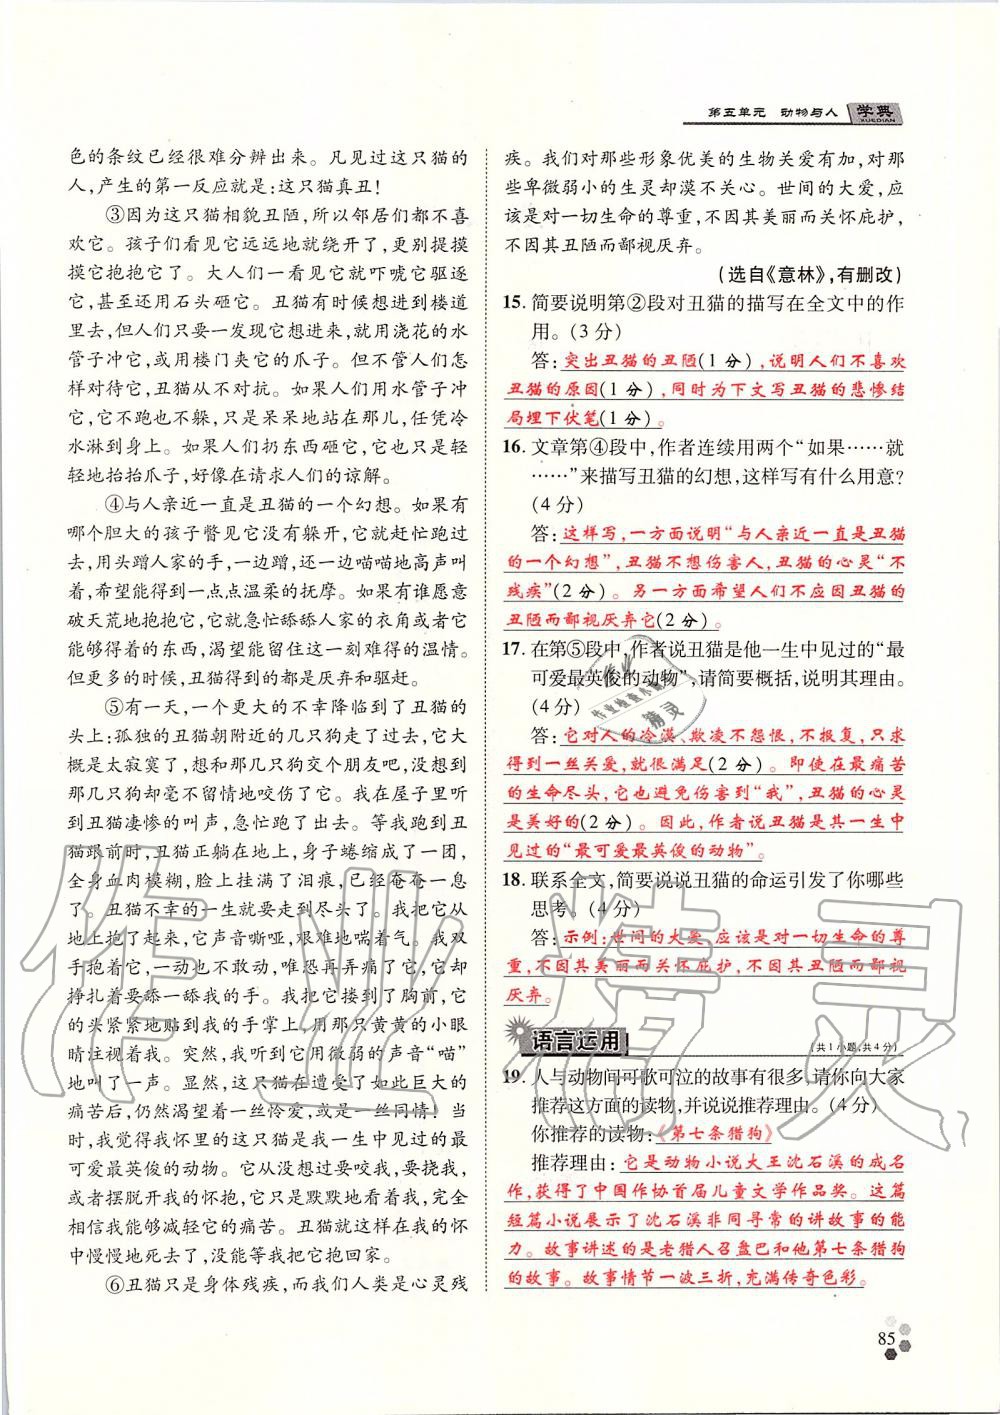 第五单元　动物与人 学典
XUEDIAN
色的条纹已经很难分辨出来。凡见过这只猫的
人,产生的第一反应就是:这只猫真丑!
③因为这只猫相貌丑陋,所以邻居们都不喜
欢它。孩子们看见它远远地就绕开了,更别提摸
摸它抱抱它了。大人们一看见它就吓唬它驱逐
它,甚至还用石头砸它。丑猫有时候想进到楼道
里去,但人们只要一发现它想进来,就用浇花的水
管子冲它,或用楼门夹它的爪子。但不管人们怎
样对待它,丑猫从不对抗。如果人们用水管子冲
它,它不跑也不躲,只是呆呆地站在那儿,任凭冷
水淋到身上。如果人们扔东西砸它,它也只是轻
轻地抬抬爪子,好像在请求人们的谅解。
④与人亲近一直是丑猫的一个幻想。如果有
哪个胆大的孩子瞥见它没有躲开,它就赶忙跑过
去,用头蹭人家的手,一边蹭,还一边喵喵地高声叫
着,希望能得到一点点温柔的抚摩。如果有谁愿意
破天荒地抱抱它,它就急忙舔舔人家的衣角或者它
能够得着的东西,渴望能留住这一刻难得的温情。
但更多的时候,丑猫得到的都是厌弃和驱赶。
⑤有一天,一个更大的不幸降临到了丑猫的
头上:孤独的丑猫朝附近的几只狗走了过去,它
是太寂寞了,想和那几只狗交个朋友吧,没想到
那几只狗却毫不留情地咬伤了它。我在屋子里听
到丑猫凄惨的叫声,急忙跑了出去。等我跑到丑
猫跟前时,丑猫正躺在地上,身子蜷缩成了一团,
全身血肉模糊,脸上挂满了泪痕,已经奄奄一息
了。丑猫不幸的一生就要走到尽头了。我把它从
地上抱了起来,它声音嘶哑,艰难地喘着气。我双
手抱着它,一动也不敢动,唯恐再弄痛了它,它却
挣扎着要舔一舔我的手。我把它搂到了胸前,它
的头紧紧地贴到我的手掌上,用那只黄黄的小眼
睛注视着我。突然,我听到它用微弱的声音“喵”
地叫了一声。显然,这只猫在遭受了如此巨大的
痛苦后,仍然渴望着一丝怜爱,或是一丝同情!当
时,我觉得我怀里的这只猫是我一生中见过的最
可爱最英俊的动物。它从没想过要咬我,要挠我,
或者摆脱开我的怀抱,它只是默默地看着我,完全
相信我能够减轻它的痛苦。丑猫就这样在我的怀
中慢慢地死去了,没能等我把它抱回家。
⑥丑猫只是身体残疾,而我们人类是心灵残
疾。我们对那些形象优美的生物关爱有加,对那
些卑微弱小的生灵却漠不关心。世间的大爱,应
该是对一切生命的尊重,不因其美丽而关怀庇护,
不因其丑陋而鄙视厌弃。
(选自《意林》,有删改)
15. 简要说明第②段对丑猫的描写在全文中的作
用。(3 分)
答:突出丑猫的丑陋(1 分),说明人们不喜欢
丑猫的原因(1 分),同时为下文写丑猫的悲惨结
局埋下伏笔(1 分)。
16. 文章第④段中,作者连续用两个“如果……就
……”来描写丑猫的幻想,这样写有什么用意?
(4 分)
答:这样写,一方面说明“与人亲近一直是丑猫
的一个幻想”,丑猫不想伤害人,丑猫的心灵“不
残疾”(2 分)。另一方面希望人们不应因丑猫的
丑陋而鄙视厌弃它(2 分)。
17. 在第⑤段中,作者说丑猫是他一生中见过的“最
可爱最英俊的动物”,请简要概括,说明其理由。
(4 分)
答:它对人的冷漠、欺凌不怨恨,不报复,只求
得到一丝关爱,就很满足(2 分)。即使在最痛苦
的生命尽头,它也避免伤害到“我”,丑猫的心灵
是美好的(2 分)。因此,作者说丑猫是其一生中
见过的“最可爱最英俊的动物”。
18. 联系全文,简要说说丑猫的命运引发了你哪些
思考。(4 分)
答:示例:世间的大爱,应该是对一切生命的尊
重,不因其美丽而关怀庇护,不因其丑陋而鄙视
厌弃。
语言运用
(共 1 小题,共 4 分)
19. 人与动物间可歌可泣的故事有很多,请你向大家
推荐这方面的读物,并说说推荐理由。(4 分)
你推荐的读物:《第七条猎狗》
推荐理由:它是动物小说大王沈石溪的成名
作,获得了中国作协首届儿童文学作品奖。这篇
短篇小说展示了沈石溪非同寻常的讲故事的能
力。故事讲述的是老猎人召盘巴和他第七条猎狗
的故事。故事情节一波三折,充满传奇色彩。
85
作业精灵
精灵